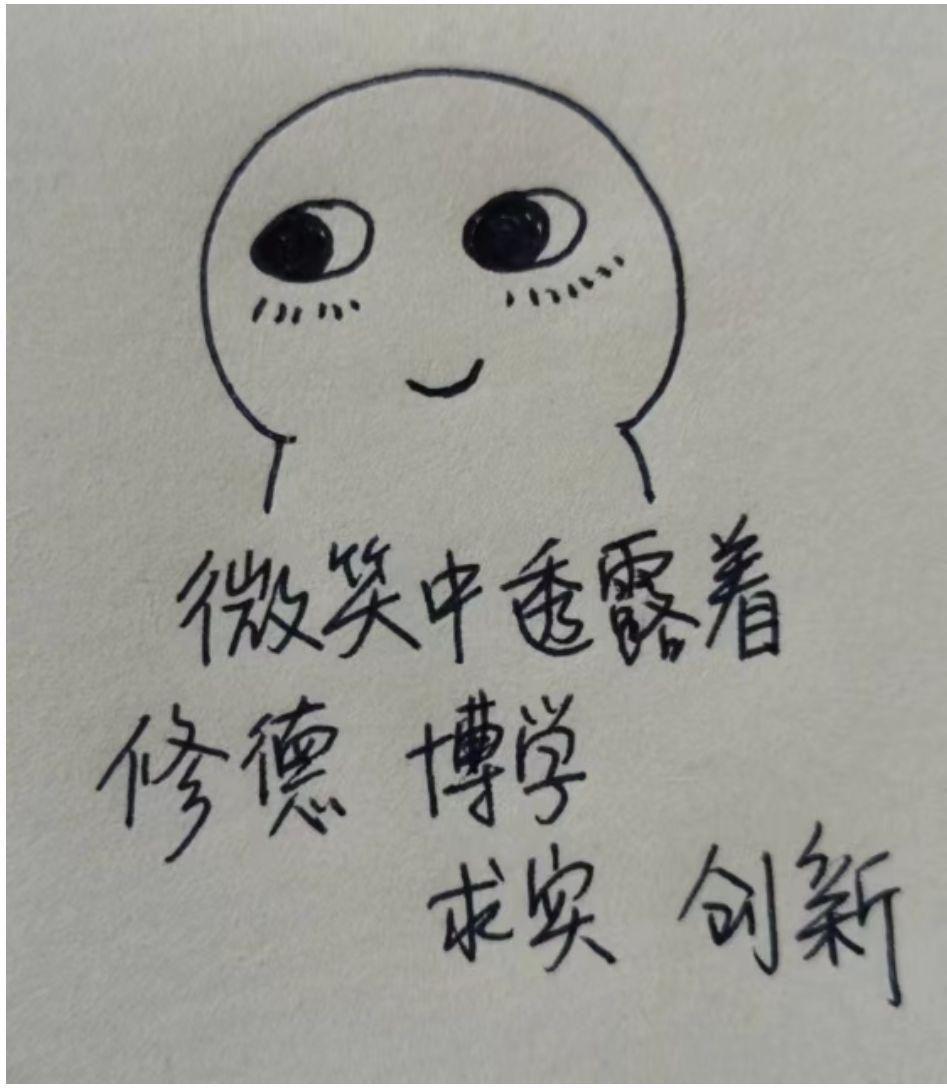 微笑中透露着
修德 博学
求实 创新